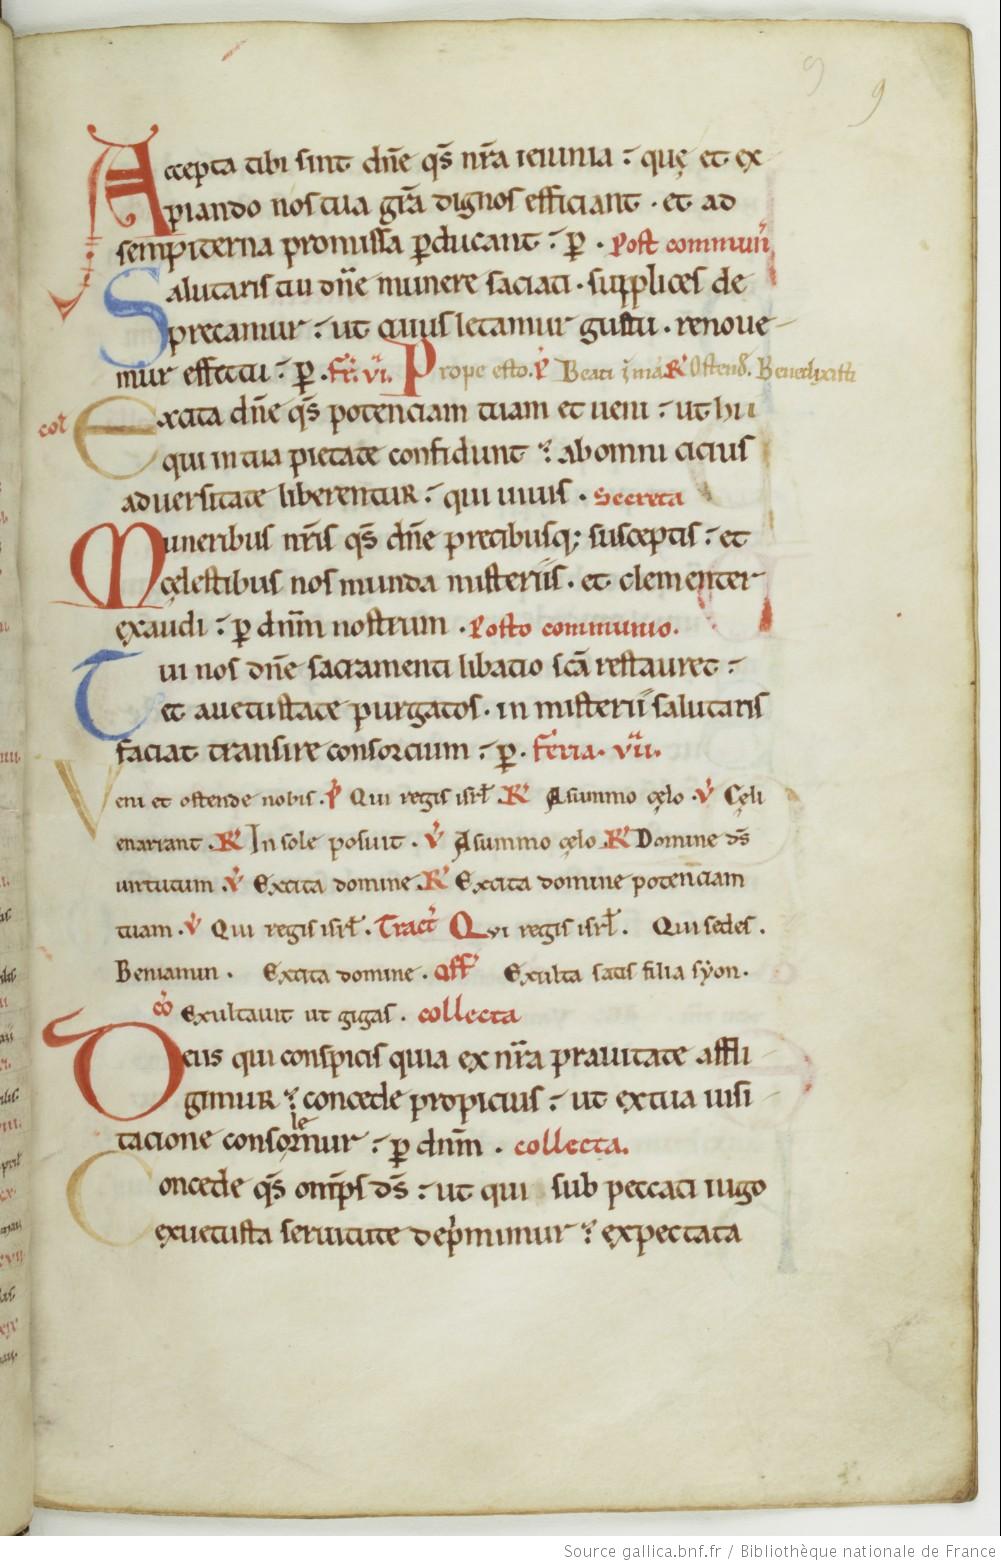 9 9
Accepta tibi sint dn̄e qs̄ nr̄a ieiunia : quę et ex-
piando nos tua gr̄a dignos efficiant . et ad
sempiterna promissa ꝑducant : ꝑ . Post commun̄
Salutaris tui dn̄e munere saciati . supplices de
precamur : ut cuius letamur gustu . renoue-
mur effectu : ꝑ . fr̄. vi. Prope esto. Beati Ostend. Benedixisti
col̄ Excita dn̄e qs̄ potenciam tuam et ueni : ut hii
qui in tua pietate confidunt : ab omni cicius
aduersitate liberentur : qui uiuis . Secreta
Muneribus nr̄is qs̄ dn̄e precibusq; susceptis : et
cęlestibus nos munda misteriis . et clementer
exaudi : ꝑ dnm̄ nostrum . Posto communio.
Tui nos dn̄e sacramenti libatio sc̄a restauret :
et a uetustate purgatos . in misterii salutaris
faciat transire consorcium : ꝑ . feria . vii.
Veni et ostende nobis . ℣ Qui regis isrł . ℟ A summo cęlo . ℣ Cęli
enarrant . ℟ In sole posuit . ℣ A summo cęlo . ℟ Domine ds̄
uirtutum . ℣ Excita domine . ℟ Excita domine potenciam
tuam . ℣ Qui regis isrł . Tract̄ Qui regis isrł . Qui sedes .
Beniamin . Excita domine . Off̄ Exulta satis filia syon .
cō Exultauit ut gigas . collecta
Deus qui conspicis quia ex nr̄a prauitate affli-
gimur : concede propicius : ut ex tua uisi-
le
tacione consormur : ꝑ dnm̄ . collecta.
Concede qs̄ omp̄s ds̄ : ut qui sub peccati iugo
ex uetusta seruitute dep̄mimur : expectata
Source gallica.bnf.fr / Bibliothèque nationale de France